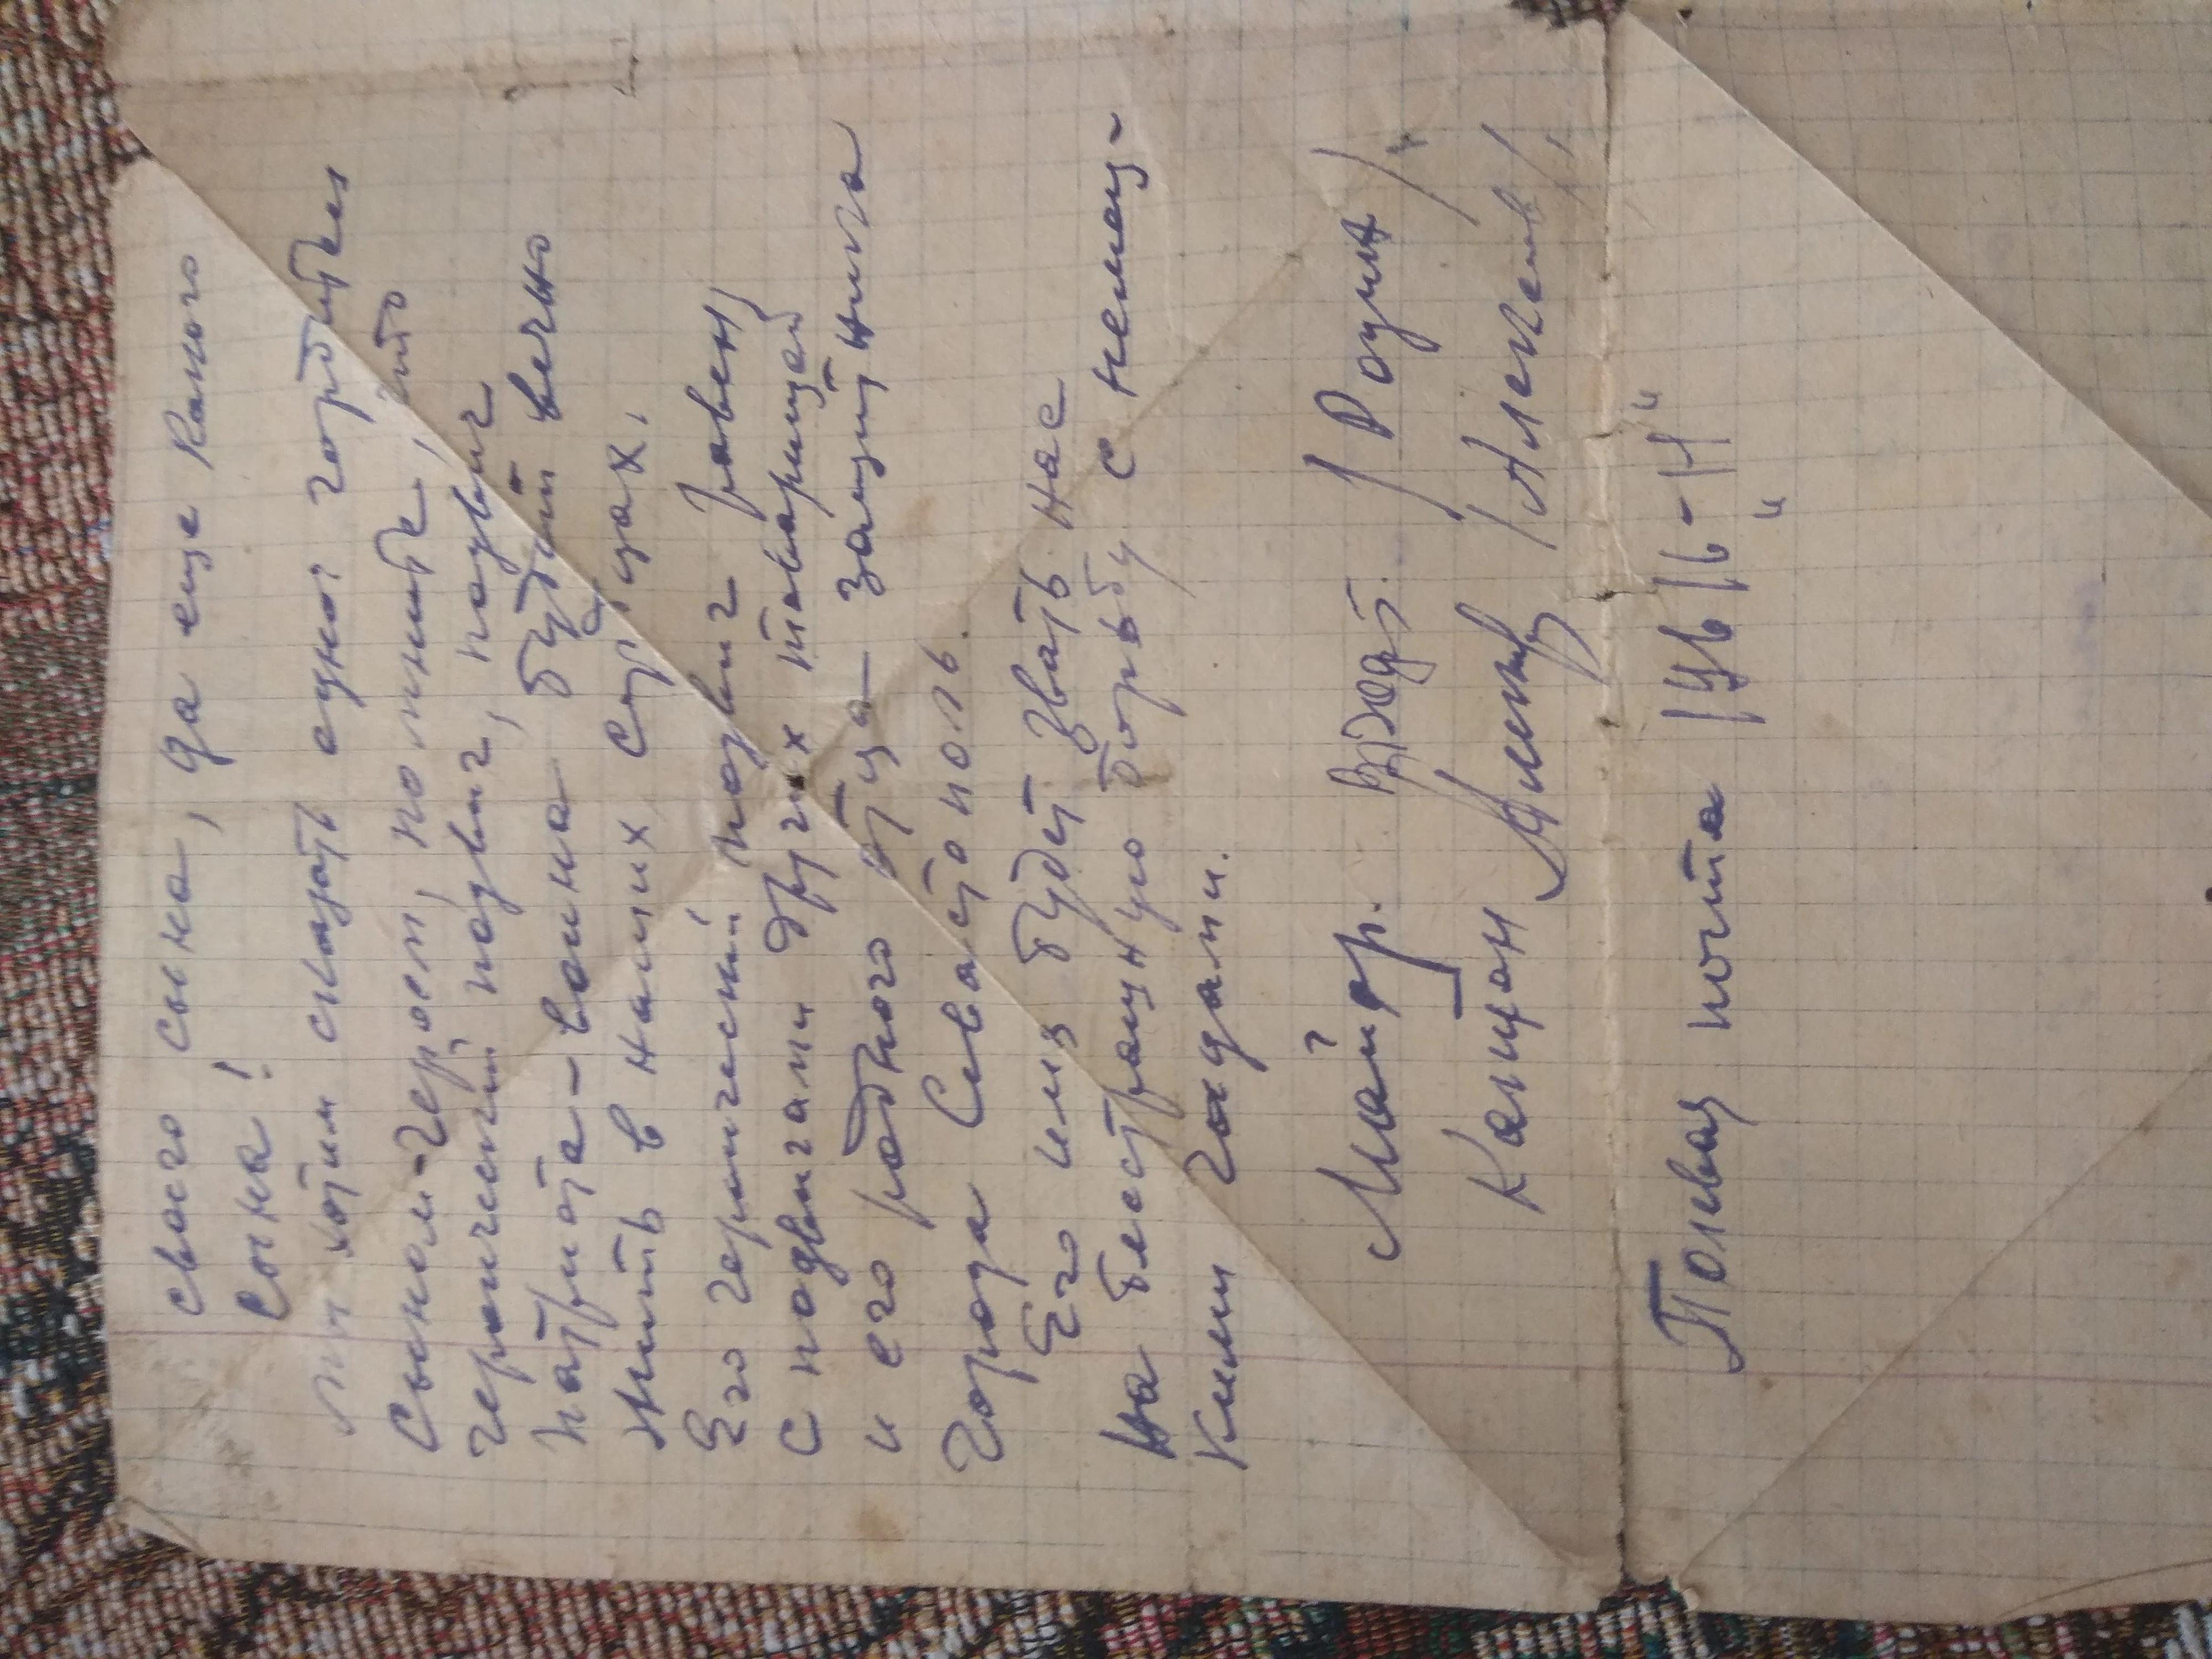 своего сына, да еще какого
сына!
Мы хотим сказать одно: гордитесь
сыном-героем, помните, что
героический подвиг, подвиг
патриота-воина будет вечно
жить в наших сердцах.
Его героический подвиг равен
с подвигами других товарищей
и его родного отца - защитника
города Севастополь.
Его имя будет звать нас
на бесстрашную борьбу с немец-
кими гадами.
Майор. /Родин/
Капитан
Полевая почта